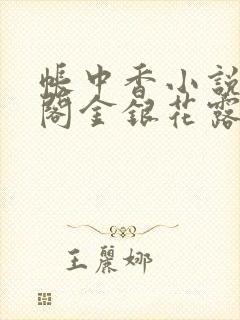 帳中香小說
閣金銀花露
王麗娜